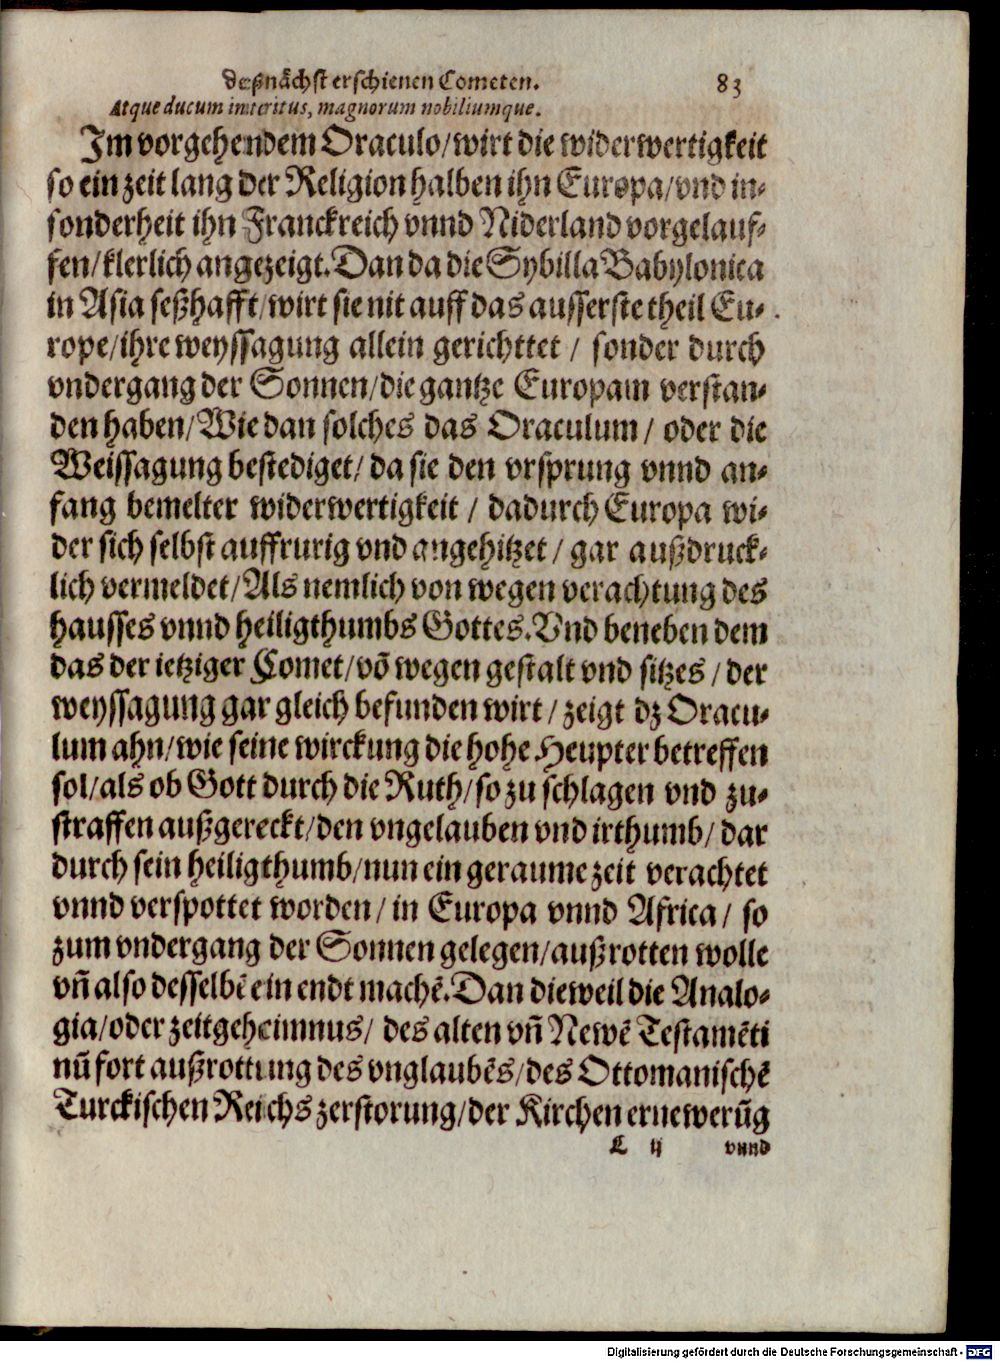 deßnächst erschienen Cometen. 83
Atque ducum interitus, magnorum nobiliumque.
Im vorgehendem Oraculo/wirt die widerwertigkeit
so ein zeit lang der Religion halben ihn Europa/vnd in-
sonderheit ihn Franckreich vnnd Niderland vorgelauf-
fen/klerlich angezeigt.Dan da die Sybilla Babylonica
in Asia seßhafft/wirt sie nit auff das ausserste theil Eu-
rope/ihre weyssagung allein gerichttet / sonder durch
vndergang der Sonnen/die gantze Europam verstan-
den haben/Wie dan solches das Oraculum / oder die
Weissagung bestediget/ da sie den vrsprung vnnd an-
fang bemelter widerwertigkeit / dadurch Europa wi-
der sich selbst auffrurig vnd angehitzet / gar außdruck-
lich vermeldet/Als nemlich von wegen verachtung des
hausses vnnd heiligthumbs Gottes.Vnd beneben dem
das der ietziger Comet/võ wegen gestalt vnd sitzes / der
weyssagung gar gleich befunden wirt / zeigt dz Oracu-
lum ahn/wie seine wirckung die hohe Heupter betreffen
sol/als ob Gott durch die Ruth/so zu schlagen vnd zu-
straffen außgereckt/den vngelauben vnd irthumb/ dar
durch sein heiligthumb/nun ein geraume zeit verachtet
vnnd verspottet worden / in Europa vnnd Africa / so
zum vndergang der Sonnen gelegen/außrotten wolle
vñ also desselbē ein endt machē.Dan dieweil die Analo-
gia/oder zeitgeheimnus/ des alten vñ Newē Testamēti
nū fort außrottung des vnglaubēs/des Ottomanischē
Turckischen Reichs zerstorung/der Kirchen ernewerūg
L ij vnnd
Digitalisierung gefördert durch die Deutsche Forschungsgemeinschaft - DFG